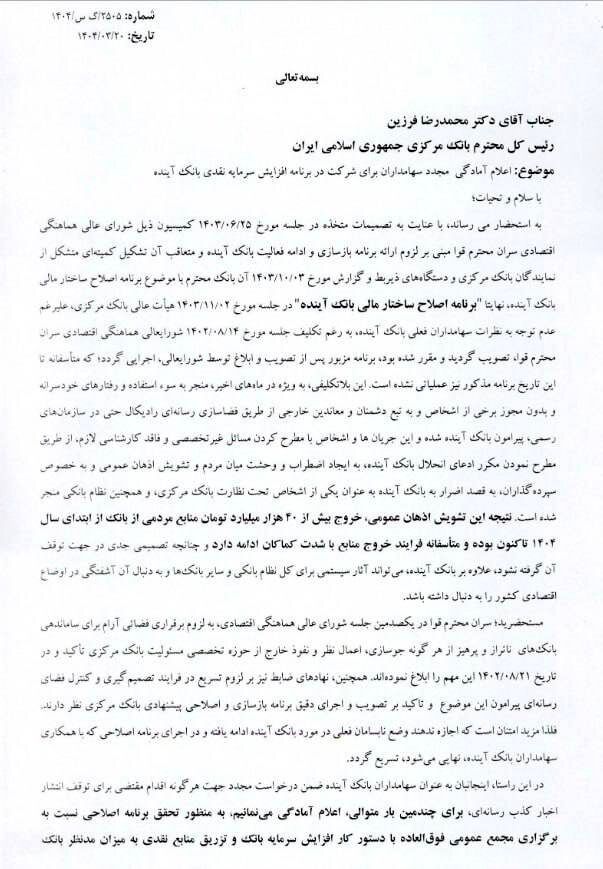 شماره: ۲۵۰۵/گ س/۱۴۰۴
تاریخ: ۱۴۰۴/۰۳/۲۰
بسمه تعالی
جناب آقای دکتر محمدرضا فرزین
رئیس کل محترم بانک مرکزی جمهوری اسلامی ایران
موضوع: اعلام آمادگی مجدد سهامداران برای شرکت در برنامه افزایش سرمایه نقدی بانک آینده
با سلام و تحیات؛
به استحضار می رساند، با عنایت به تصمیمات متخذه در جلسه مورخ ۱۴۰۳/۰۶/۲۵ کمیسیون ذیل شورای عالی هماهنگی
اقتصادی سران محترم قوا مبنی بر لزوم ارائه برنامه بازسازی و ادامه فعالیت بانک آینده و متعاقب آن تشکیل کمیته‌ای متشکل از
نمایندگان بانک مرکزی و دستگاه‌های ذیربط و گزارش مورخ ۱۴۰۳/۱۰/۰۳ آن بانک محترم با موضوع برنامه اصلاح ساختار مالی
بانک آینده، نهایتا "برنامه اصلاح ساختار مالی بانک آینده" در جلسه مورخ ۱۴۰۳/۱۱/۰۲ هیأت عالی بانک مرکزی، علیرغم
عدم توجه به نظرات سهامداران فعلی بانک آینده، به رغم تکلیف جلسه مورخ ۱۴۰۲/۰۸/۱۴ شورایعالی هماهنگی اقتصادی سران
محترم قوا، تصویب گردید و مقرر شده بود، برنامه مزبور پس از تصویب و ابلاغ توسط شورایعالی، اجرایی گردد؛ که متأسفانه تا
این تاریخ برنامه مذکور نیز عملیاتی نشده است. این بلاتکلیفی، به ویژه در ماه‌های اخیر، منجر به سوء استفاده و رفتارهای خودسرانه
و بدون مجوز برخی از اشخاص و به تبع دشمنان و معاندین خارجی از طریق فضاسازی رسانه‌ای رادیکال حتی در سازمان‌های
رسمی، پیرامون بانک آینده شده و این جریان ها و اشخاص با مطرح کردن مسائل غیرتخصصی و فاقد کارشناسی لازم، از طریق
مطرح نمودن مکرر ادعای انحلال بانک آینده، به ایجاد اضطراب و وحشت میان مردم و تشویش اذهان عمومی و به خصوص
سپرده‌گذاران، به قصد اضرار به بانک آینده به عنوان یکی از اشخاص تحت نظارت بانک مرکزی، و همچنین نظام بانکی منجر
شده است. نتیجه این تشویش اذهان عمومی، خروج بیش از ۴۰ هزار میلیارد تومان منابع مردمی از بانک از ابتدای سال
۱۴۰۴ تاکنون بوده و متأسفانه فرایند خروج منابع با شدت کماکان ادامه دارد و چنانچه تصمیمی جدی در جهت توقف
آن گرفته نشود، علاوه بر بانک آینده، می‌تواند آثار سیستمی برای کل نظام بانکی و سایر بانک‌ها و به دنبال آن آشفتگی در اوضاع
اقتصادی کشور را به دنبال داشته باشد.
مستحضرید؛ سران محترم قوا در یکصدمین جلسه شورای عالی هماهنگی اقتصادی، به لزوم برقراری فضائی آرام برای ساماندهی
بانک‌های ناتراز و پرهیز از هر گونه جوسازی، اعمال نظر و نفوذ خارج از حوزه تخصصی مسئولیت بانک مرکزی تأکید و در
تاریخ ۱۴۰۲/۰۸/۲۱ این مهم را ابلاغ نموده‌اند. همچنین، نهادهای ضابط نیز بر لزوم تسریع در فرایند تصمیم‌گیری و کنترل فضای
رسانه‌ای پیرامون این موضوع و تاکید بر تصویب و اجرای دقیق برنامه بازسازی و اصلاحی پیشنهادی بانک مرکزی نظر دارند.
فلذا مزید امتنان است که اجازه ندهند وضع نابسامان فعلی در مورد بانک آینده ادامه یافته و در اجرای برنامه اصلاحی که با همکاری
سهامداران بانک آینده، نهایی می‌شود، تسریع گردد.
در این راستا، اینجانبان به عنوان سهامداران بانک آینده ضمن درخواست مجدد جهت هرگونه اقدام مقتضی برای توقف انتشار
اخبار کذب رسانه‌ای، برای چندمین بار متوالی، اعلام آمادگی می‌نمائیم، به منظور تحقق برنامه اصلاحی نسبت به
برگزاری مجمع عمومی فوق‌العاده با دستور کار افزایش سرمایه بانک و تزریق منابع نقدی به میزان مدنظر بانک